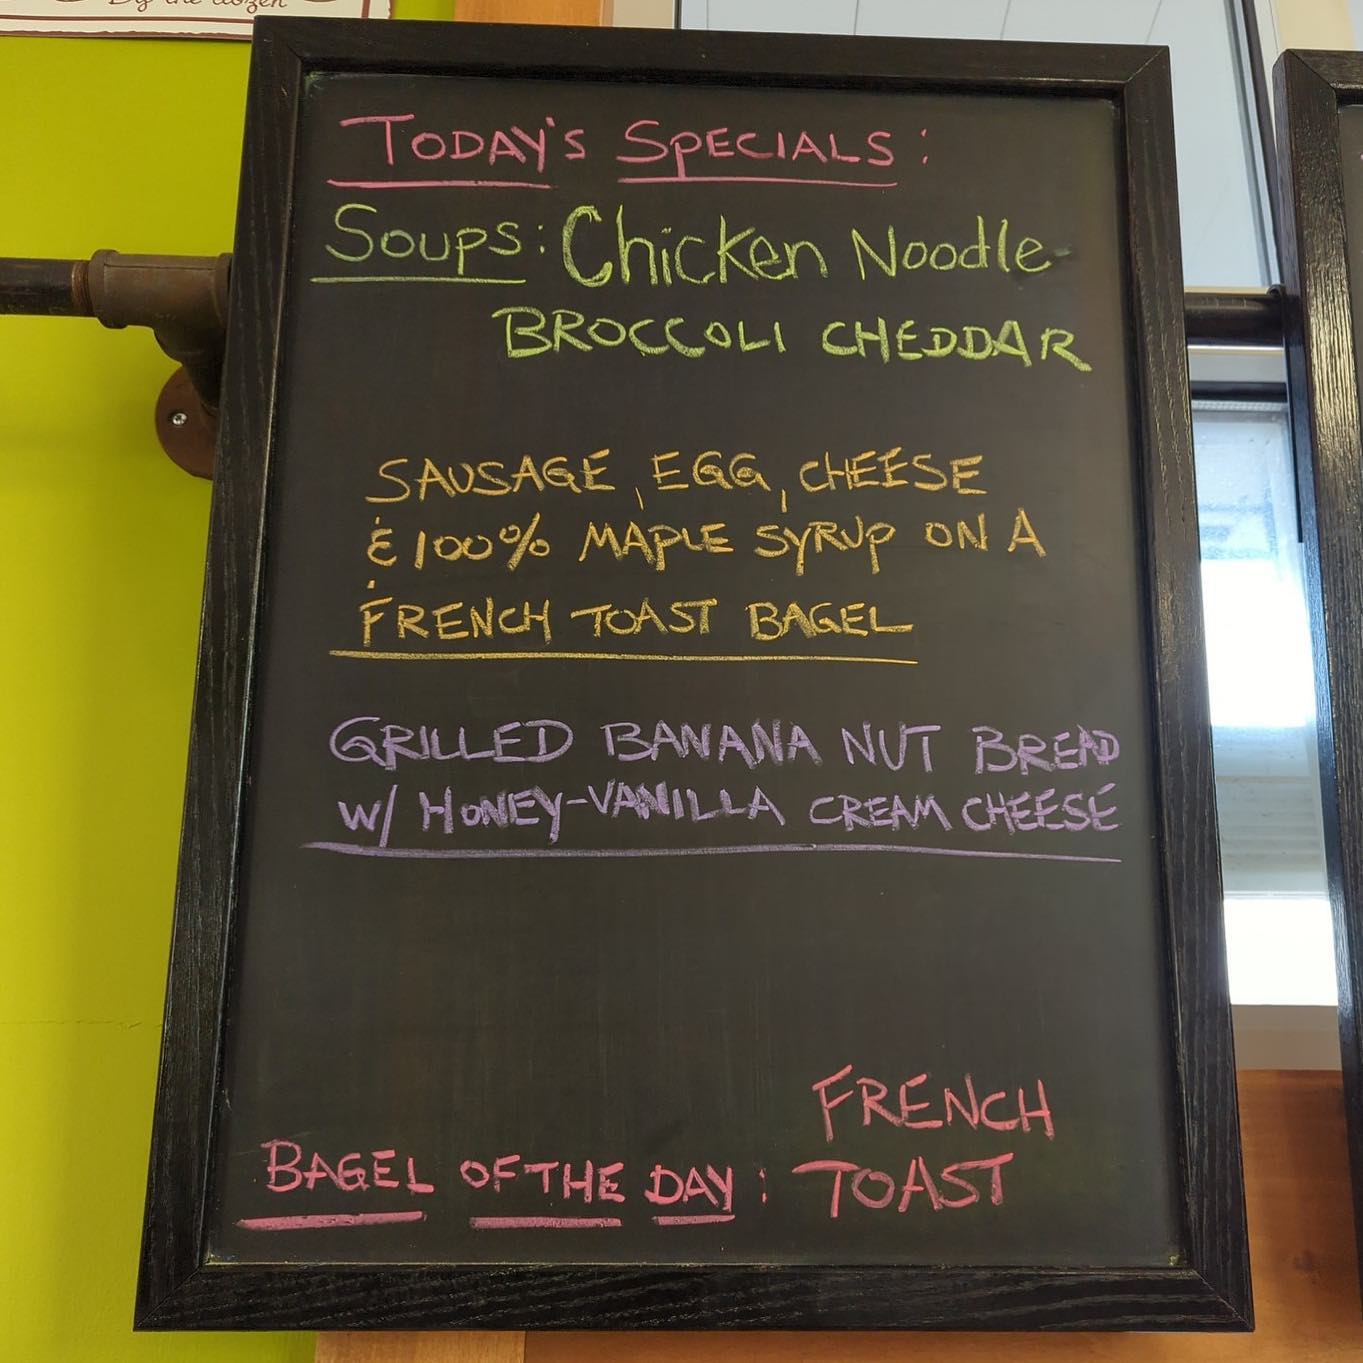 By the dozen
TODAY'S SPECIALS:
SOUPS: Chicken Noodle-
BROCCOLI CHEDDAR
SAUSAGE, EGG, CHEESE
& 100% MAPLE SYRUP ON A
FRENCH TOAST BAGEL
GRILLED BANANA NUT BREAD
W/ HONEY-VANILLA CREAM CHEESE
FRENCH
BAGEL OF THE DAY: TOAST